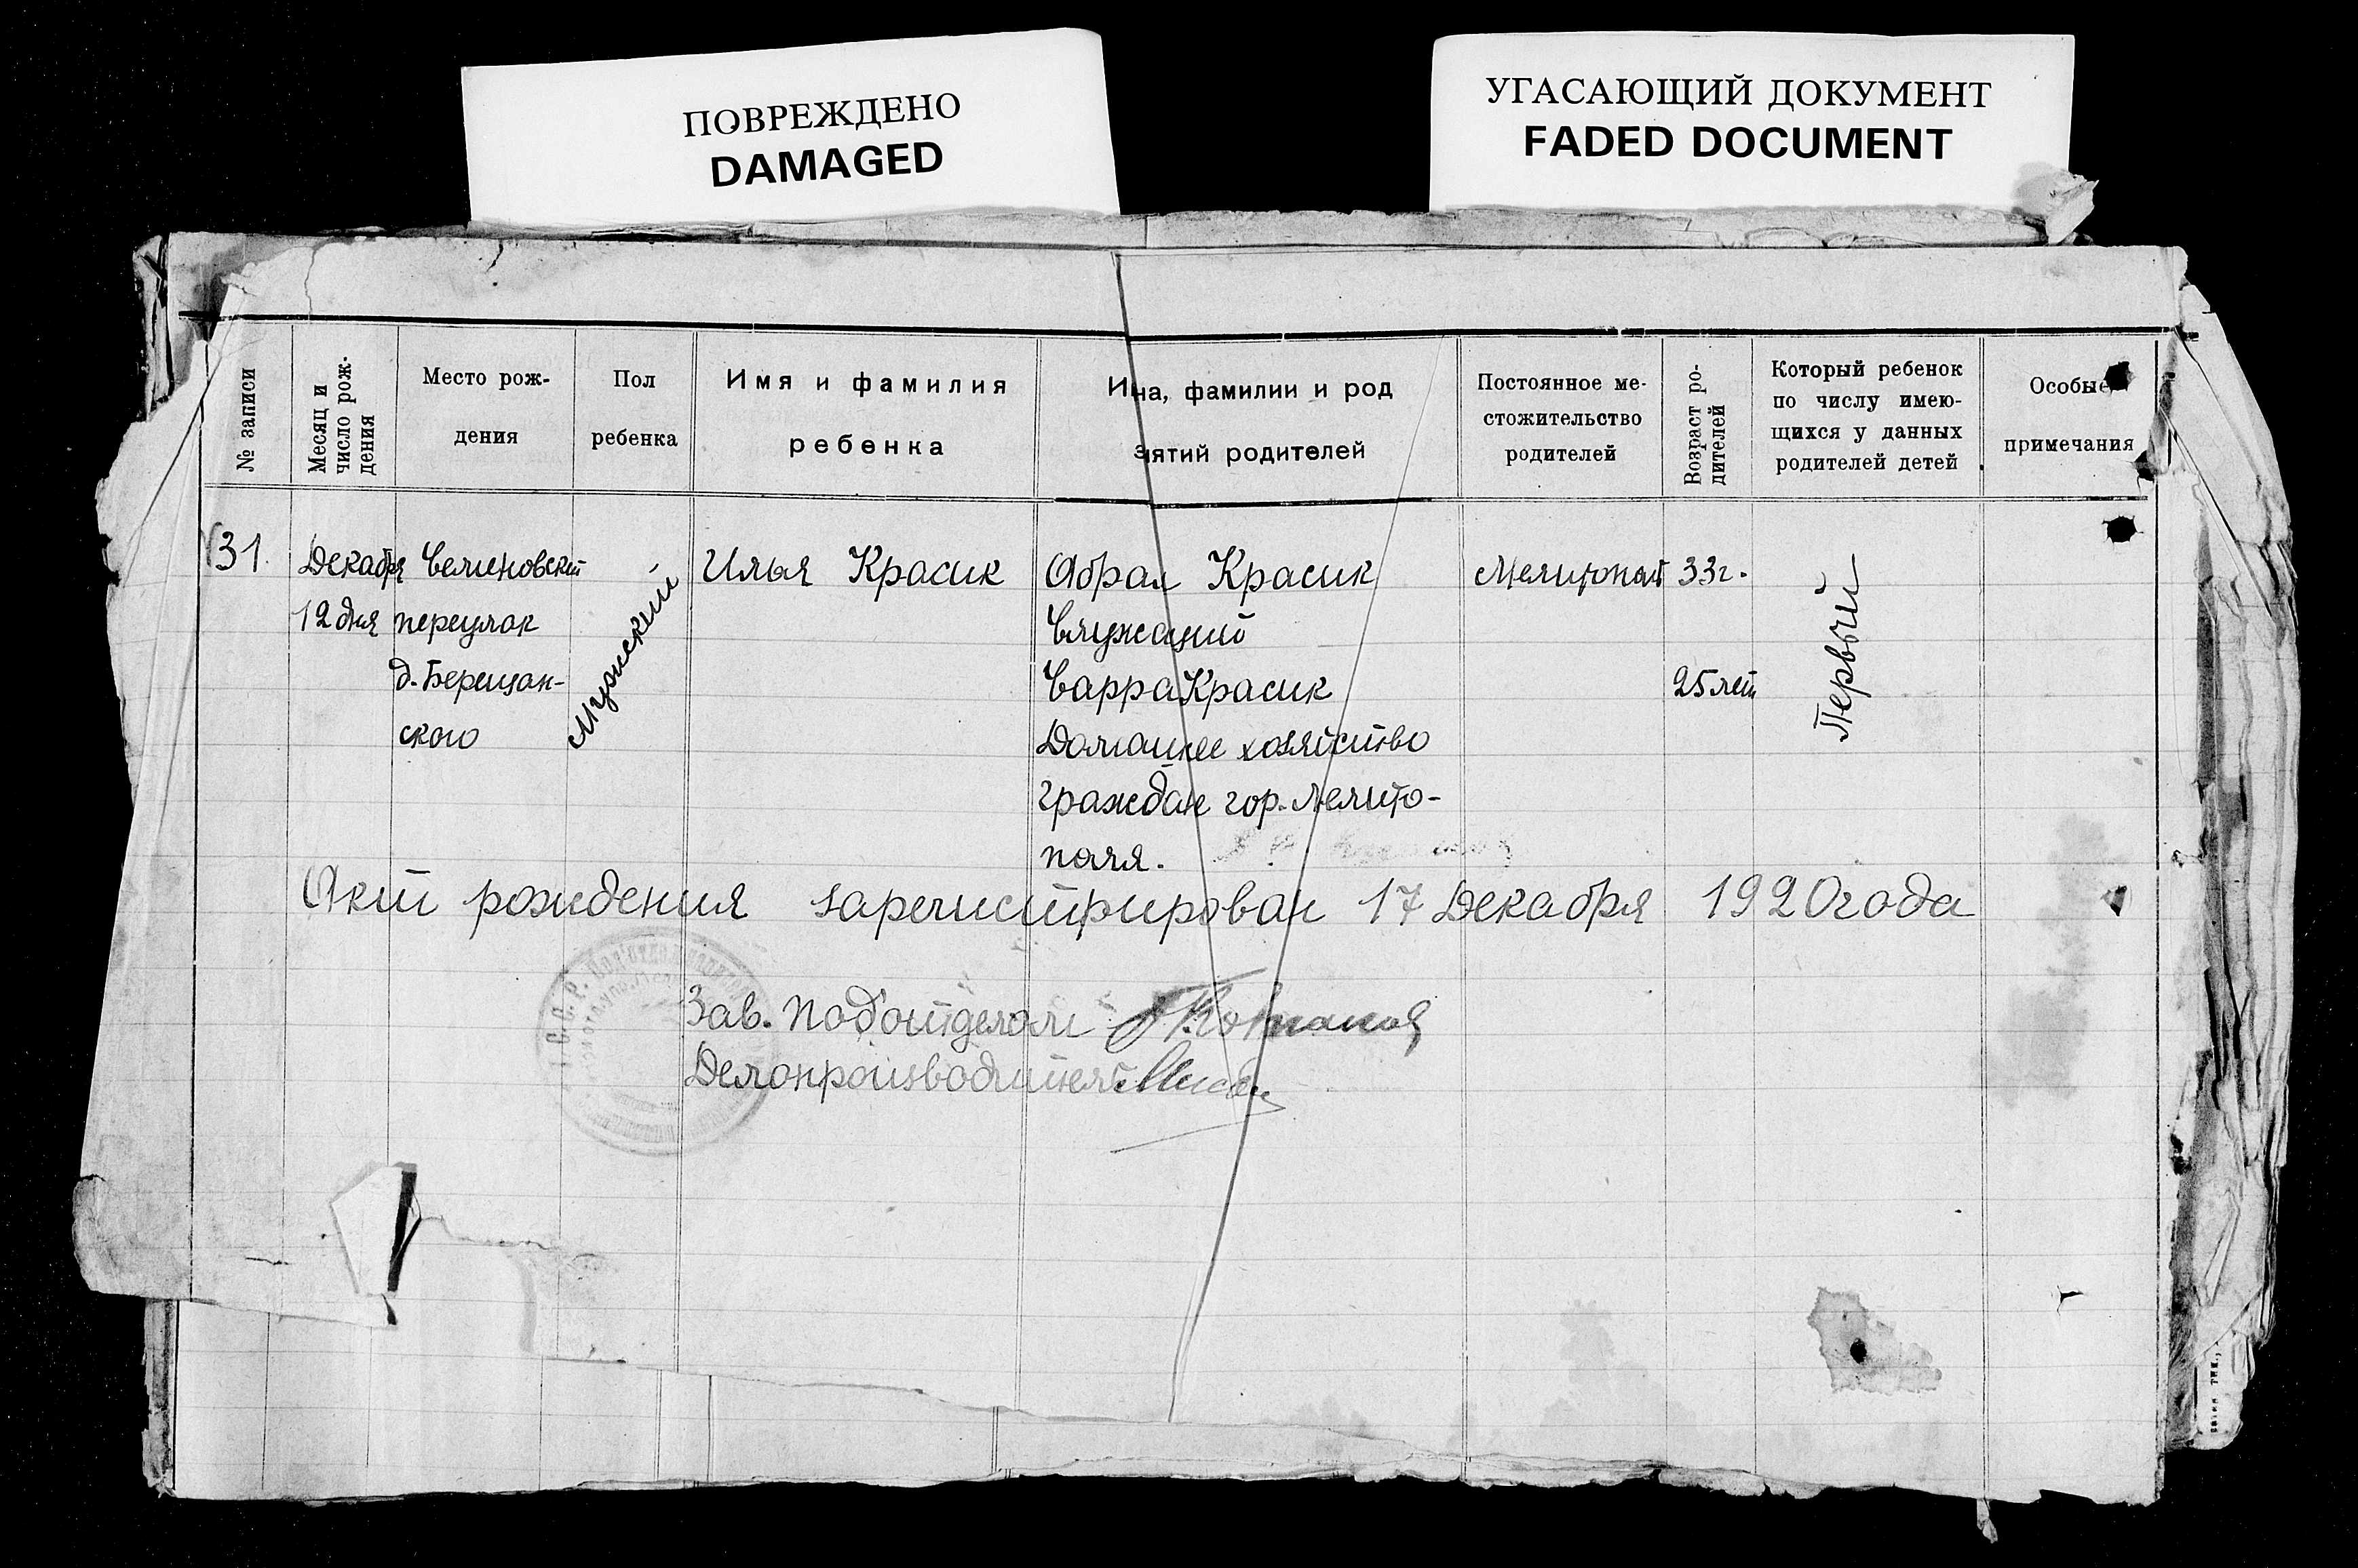 ПОВРЕЖДЕНО
DAMAGED
УГАСАЮЩИЙ ДОКУМЕНТ
FADED DOCUMENT
№ записи
Месяц и
число рож-
дения
Место рож-
дения
Пол
ребенка
Имя и фамилия
ребенка
Име на, фамилии и род
занятий родителей
Постоянное ме-
стожительство
родителей
Возраст ро-
дителей
Который ребенок
по числу имею-
щихся у данных
родителей детей
Особые
примечания
31.
Декабря
12 дня
Семеновский
переулок
д. Берещан-
ского
Мужский
Илья Красик
Абрам Красик
Служащий
Сарра Красик
Домашнее хозяйство
граждане гор. Мелито-
поля.
Мелитополь
33 г.
25 лет
Первый
Акт рождения зарегистрирован 17 Декабря 1920 года
Зав. Подотделом
Делопроизводитель